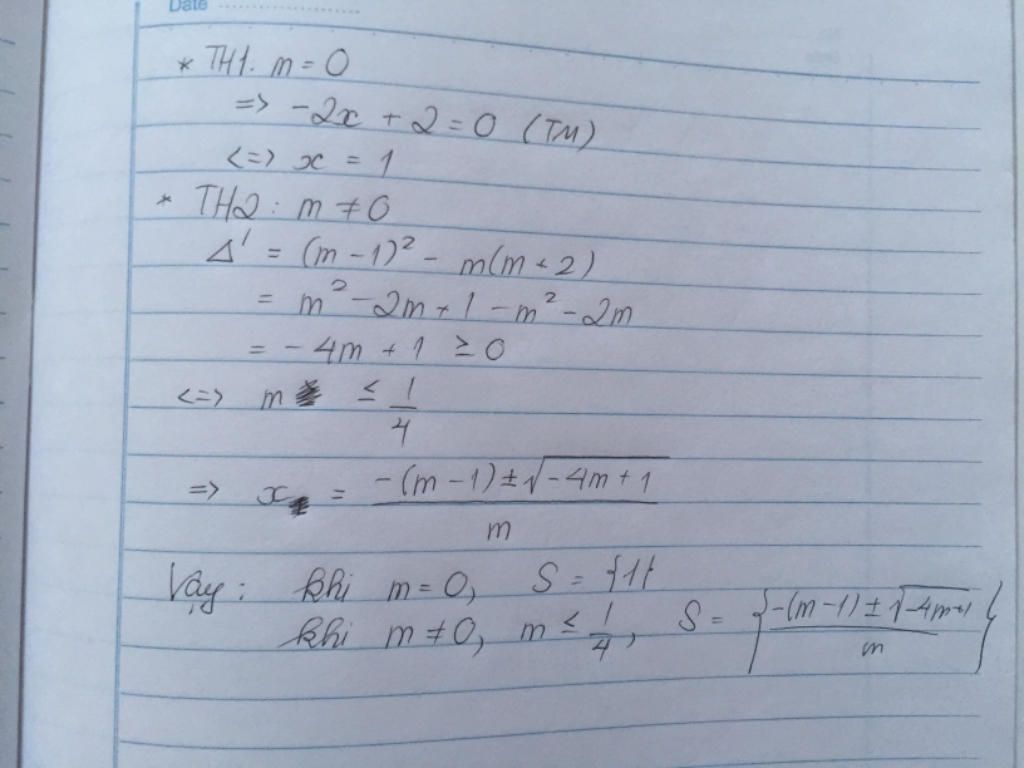 Date
* TH1: m = 0
=> -2x + 2 = 0 (TM)
<=> x = 1
* TH2: m ≠ 0
Δ' = (m - 1)² - m(m + 2)
= m² - 2m + 1 - m² - 2m
= - 4m + 1 ≥ 0
<=> m ≤ 1/4
=> x = (-(m - 1) ± √(-4m + 1))/m
Vậy: khi m = 0, S = {1}
khi m ≠ 0, m ≤ 1/4, S = {(-(m - 1) ± √(-4m + 1))/m}